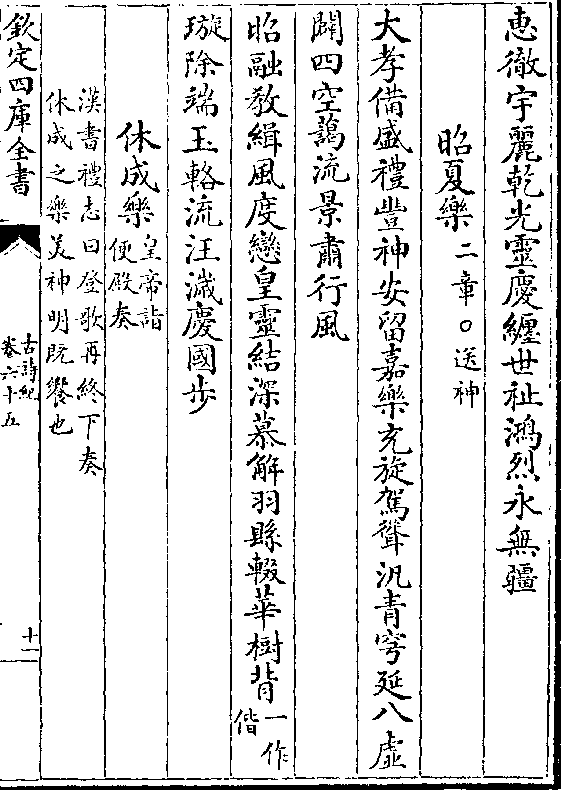 惠徹宇麗乾光靈慶纒世祉鴻烈永無疆
昭夏樂二章○送神
大孝備盛禮豐神安留嘉樂充旋駕聳汎青穹延八虛
闢四空藹流景肅行風
昭融教緝風度戀皇靈結深慕解羽縣輟華樹背一作偕
璇除端玉輅流汪濊慶國步
休成樂皇帝詣便殿奏
漢書禮志曰登歌再終下奏
休成之樂美神明既饗也
欽定四庫全書
古詩紀
卷六十五
十一